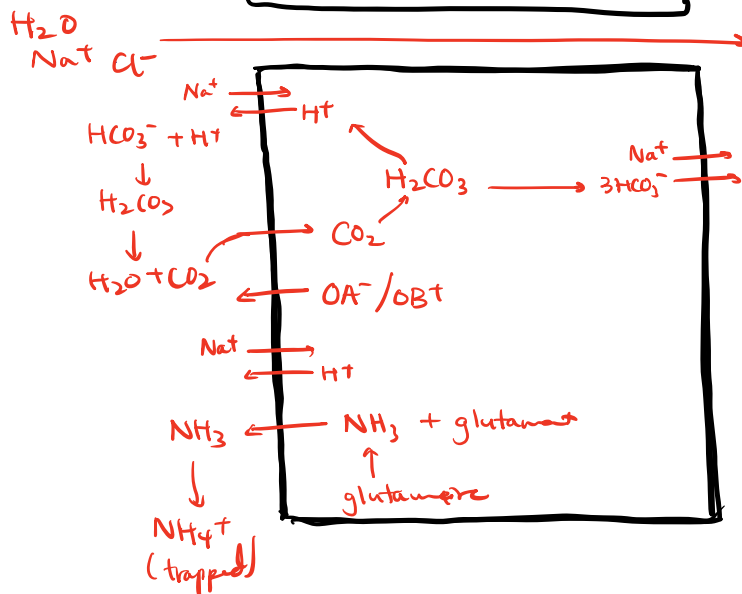 H2O
Na+ Cl-
Na+
H+
HCO3- + H+
H2CO3
Na+
3HCO3-
H2CO3
CO2
H2O + CO2
OA-/OB+
Na+
H+
NH3
NH3 + glutamate
glutamine
NH4+
(trapped)